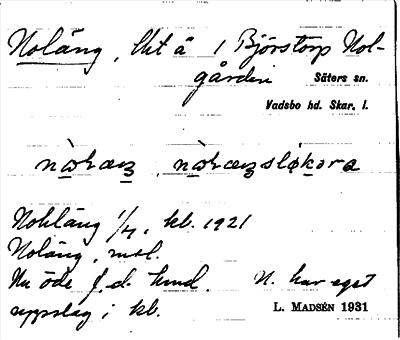 Noläng, lht å 1 Björstorp Nol-
gården Säters sn.
Vadsbo hd. Skar. l.
Nohläng 1/4, kb. 1921
Noläng, mtl.
Nu öde f.d. hmd. N. har eget
uppslag i kb.
L. MADSÉN 1931